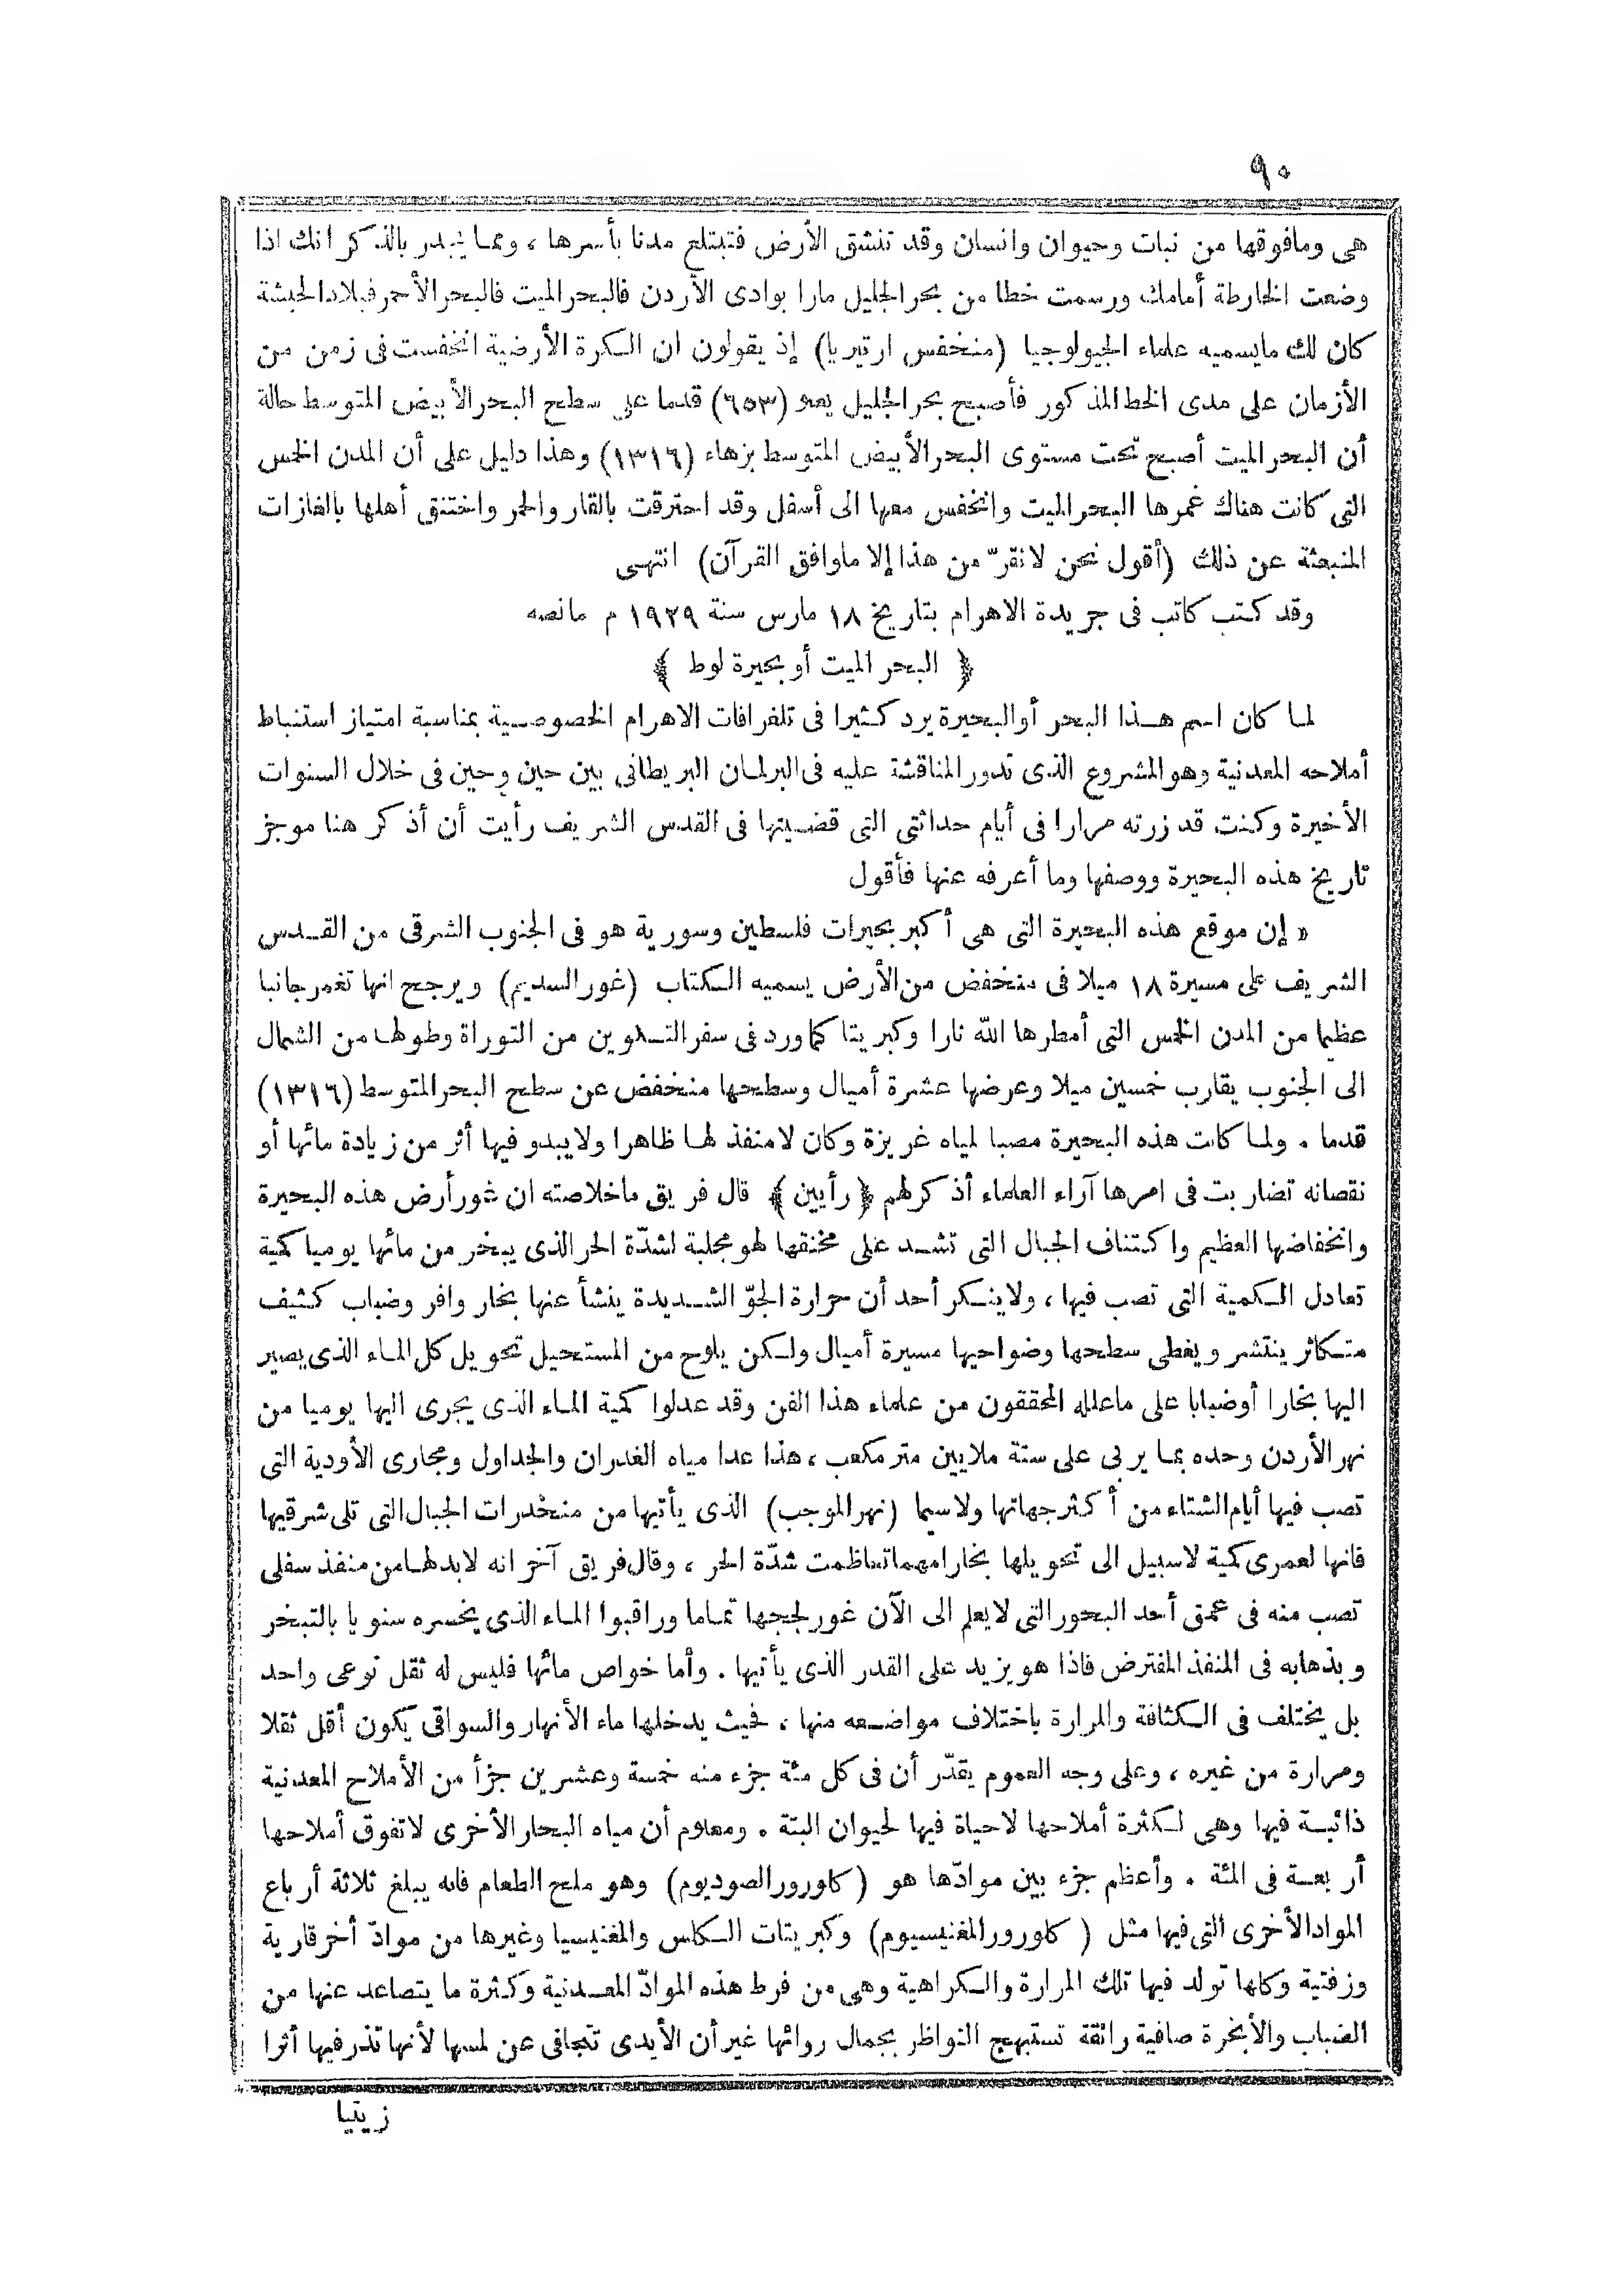 ٩٠
هى ومافوقها من نبات وحيوان وانسان وقد تنشق الأرض فتبتلع مدنا بأسرها ، ومما يجدر بالذكر انك اذا
وضعت الخارطة أمامك ورسمت خطا من بحر الجليل مارا بوادى الأردن فالبحر الميت فالبحر الأحمر فبلاد الحبشة
كان لك مايسميه علماء الجيولوجيا (منخفس ارتيريا) إذ يقولون ان الكرة الأرضية انخفست فى زمن من
الأزمان على مدى الخط المذكور فأصبح بحر الجليل يعلو (٦٥٣) قدما على سطح البحر الأبيض المتوسط حالة
أن البحر الميت أصبح تحت مستوى البحر الأبيض المتوسط بزهاء (١٣١٦) وهذا دليل على أن المدن الخمس
التى كانت هناك غمرها البحر الميت وانخفس معها الى أسفل وقد احترقت بالقار والحمر واختنق أهلها بالغازات
المنبعثة عن ذلك (أقول نحن لانقرّ من هذا إلا ماوافق القرآن) انتهى
وقد كتب كاتب فى جريدة الاهرام بتاريخ ١٨ مارس سنة ١٩٢٩ م مانصه
﴿ البحر الميت أو بحيرة لوط ﴾
لما كان اسم هذا البحر أو البحيرة يرد كثيرا فى تلغرافات الاهرام الخصوصية بمناسبة امتياز استنباط
أملاحه المعدنية وهو المشروع الذى تدور المناقشة عليه فى البرلمان البريطانى بين حين وحين فى خلال السنوات
الأخيرة وكنت قد زرته مرارا فى أيام حداثتى التى قضيتها فى القدس الشريف رأيت أن أذكر هنا موجز
تاريخ هذه البحيرة ووصفها وما أعرفه عنها فأقول
« إن موقع هذه البحيرة التى هى أكبر بحيرات فلسطين وسورية هو فى الجنوب الشرقى من القدس
الشريف على مسيرة ١٨ ميلا فى منخفض من الأرض يسميه الكتاب (غور السديم) ويرجح انها تغمر جانبا
عظيما من المدن الخمس التى أمطرها الله نارا وكبريتا كما ورد فى سفر التكوين من التوراة وطولها من الشمال
الى الجنوب يقارب خمسين ميلا وعرضها عشرة أميال وسطحها منخفض عن سطح البحر المتوسط (١٣١٦)
قدما . ولما كانت هذه البحيرة مصبا لمياه غريزة وكان لا منفذ لها ظاهرا ولا يبدو فيها أثر من زيادة مائها أو
نقصانه تضاربت فى امرها آراء العلماء أذكر لهم ﴿ رأيين ﴾ قال فريق ماخلاصته ان غور أرض هذه البحيرة
وانخفاضها العظيم واكتناف الجبال التى تشد على مخنقها لهو مجلبة لشدّة الحر الذى يبخر من مائها يوميا كمية
تعادل الكمية التى تصب فيها ، ولا ينكر أحد أن حرارة الجوّ الشديدة ينشأ عنها بخار وافر وضباب كثيف
متكاثر ينتشر ويغطى سطحها وضواحيها مسيرة أميال ولكن يلوح من المستحيل تحويل كل الماء الذى يصير
اليها بخارا أو ضبابا على ماعلله المحققون من علماء هذا الفن وقد عدلوا كمية الماء الذى يجرى اليها يوميا من
نهر الأردن وحده بما يربى على ستة ملايين متر مكعب ، هذا عدا مياه الغدران والجداول ومجارى الأودية التى
تصب فيها أيام الشتاء من أكثر جهاتها ولاسيما (نهر الموجب) الذى يأتيها من منحدرات الجبال التى تلى شرقيها
فانها لعمرى كمية لاسبيل الى تحويلها بخارا مهما تعاظمت شدّة الحر ، وقال فريق آخر انه لابد لها من منفذ سفلى
تصب منه فى عمق أحد البحور التى لايعلم الى الآن غور لججها تماما وراقبوا الماء الذى يخسره سنويا بالتبخر
وبذهابه فى المنفذ المفترض فاذا هو يزيد على القدر الذى يأتيها . وأما خواص مائها فليس له ثقل نوعى واحد
بل يختلف فى الكثافة والمرارة باختلاف مواضعه منها ، فحيث يدخلها ماء الأنهار والسواقى يكون أقل ثقلا
ومرارة من غيره ، وعلى وجه العموم يقدّر أن فى كل مئة جزء منه خمسة وعشرين جزأ من الأملاح المعدنية
ذائبة فيها وهى لكثرة أملاحها لاحياة فيها لحيوان البتة . ومعلوم أن مياه البحار الأخرى لاتفوق أملاحها
أربعة فى المئة . وأعظم جزء بين موادّها هو (كلورور الصوديوم) وهو ملح الطعام فانه يبلغ ثلاثة أرباع
المواد الأخرى التى فيها مثل (كلورور المغنيسيوم) وكبريتات الكلس والمغنيسيا وغيرها من موادّ أخر قارية
وزفتية وكلها تولد فيها تلك المرارة والكراهية وهى من فرط هذه الموادّ المعدنية وكثرة ما يتصاعد عنها من
الضباب والأبخرة صافية رائقة تستبهج النواظر بجمال روائها غير أن الأيدى تتجافى عن لمسها لأنها تذر فيها أثرا
زيتيا